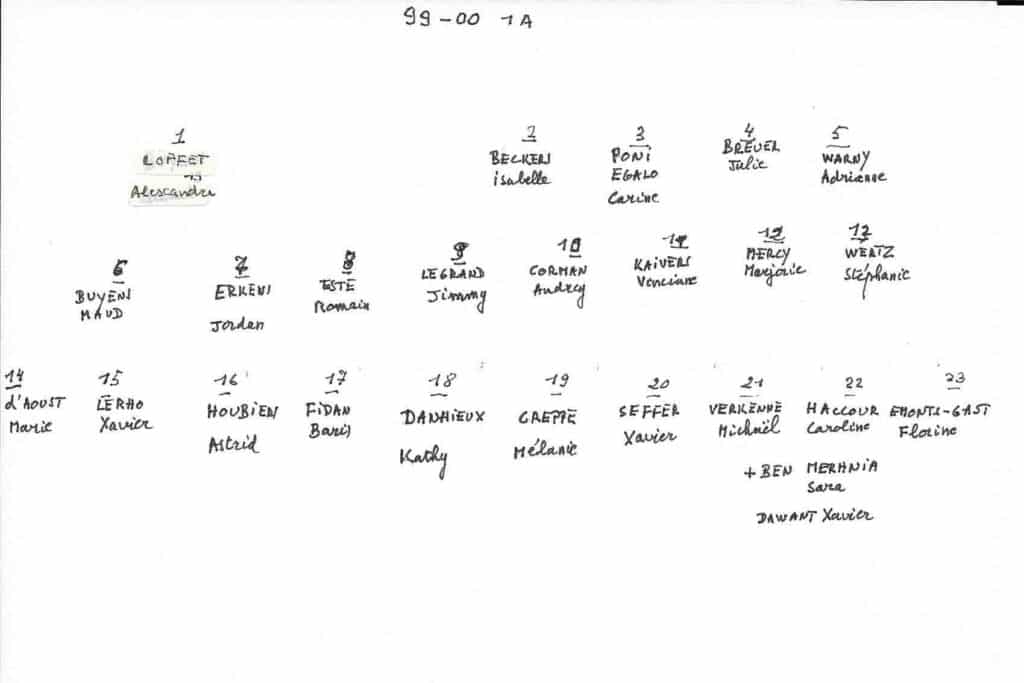 99-00 1A
1 2 3 4 5
LOFFET BECKERS PONI BREUER WARNY
Alexandre isabelle EGALO Julie Adrienne
Carine
6 7 8 9 10 11 12 13
BUYENS ERKENS ESTÉ LEGRAND CORMAN KAIVERS MERCY WERTZ
MAUD Jordan Romain Jimmy Audrey Venciane Marjorie Stéphanie
14 15 16 17 18 19 20 21 22 23
d'AOUST LERHO HOUBIEN FIDAN DANHIEUX GREFFE SEFFER VERKENNE HALLOUR EMONTS-GAST
Marie Xavier Astrid Baris Kathy Mélanie Xavier Michaël Caroline Florine
+ BEN MERHNIA
Sara
DAWANT Xavier